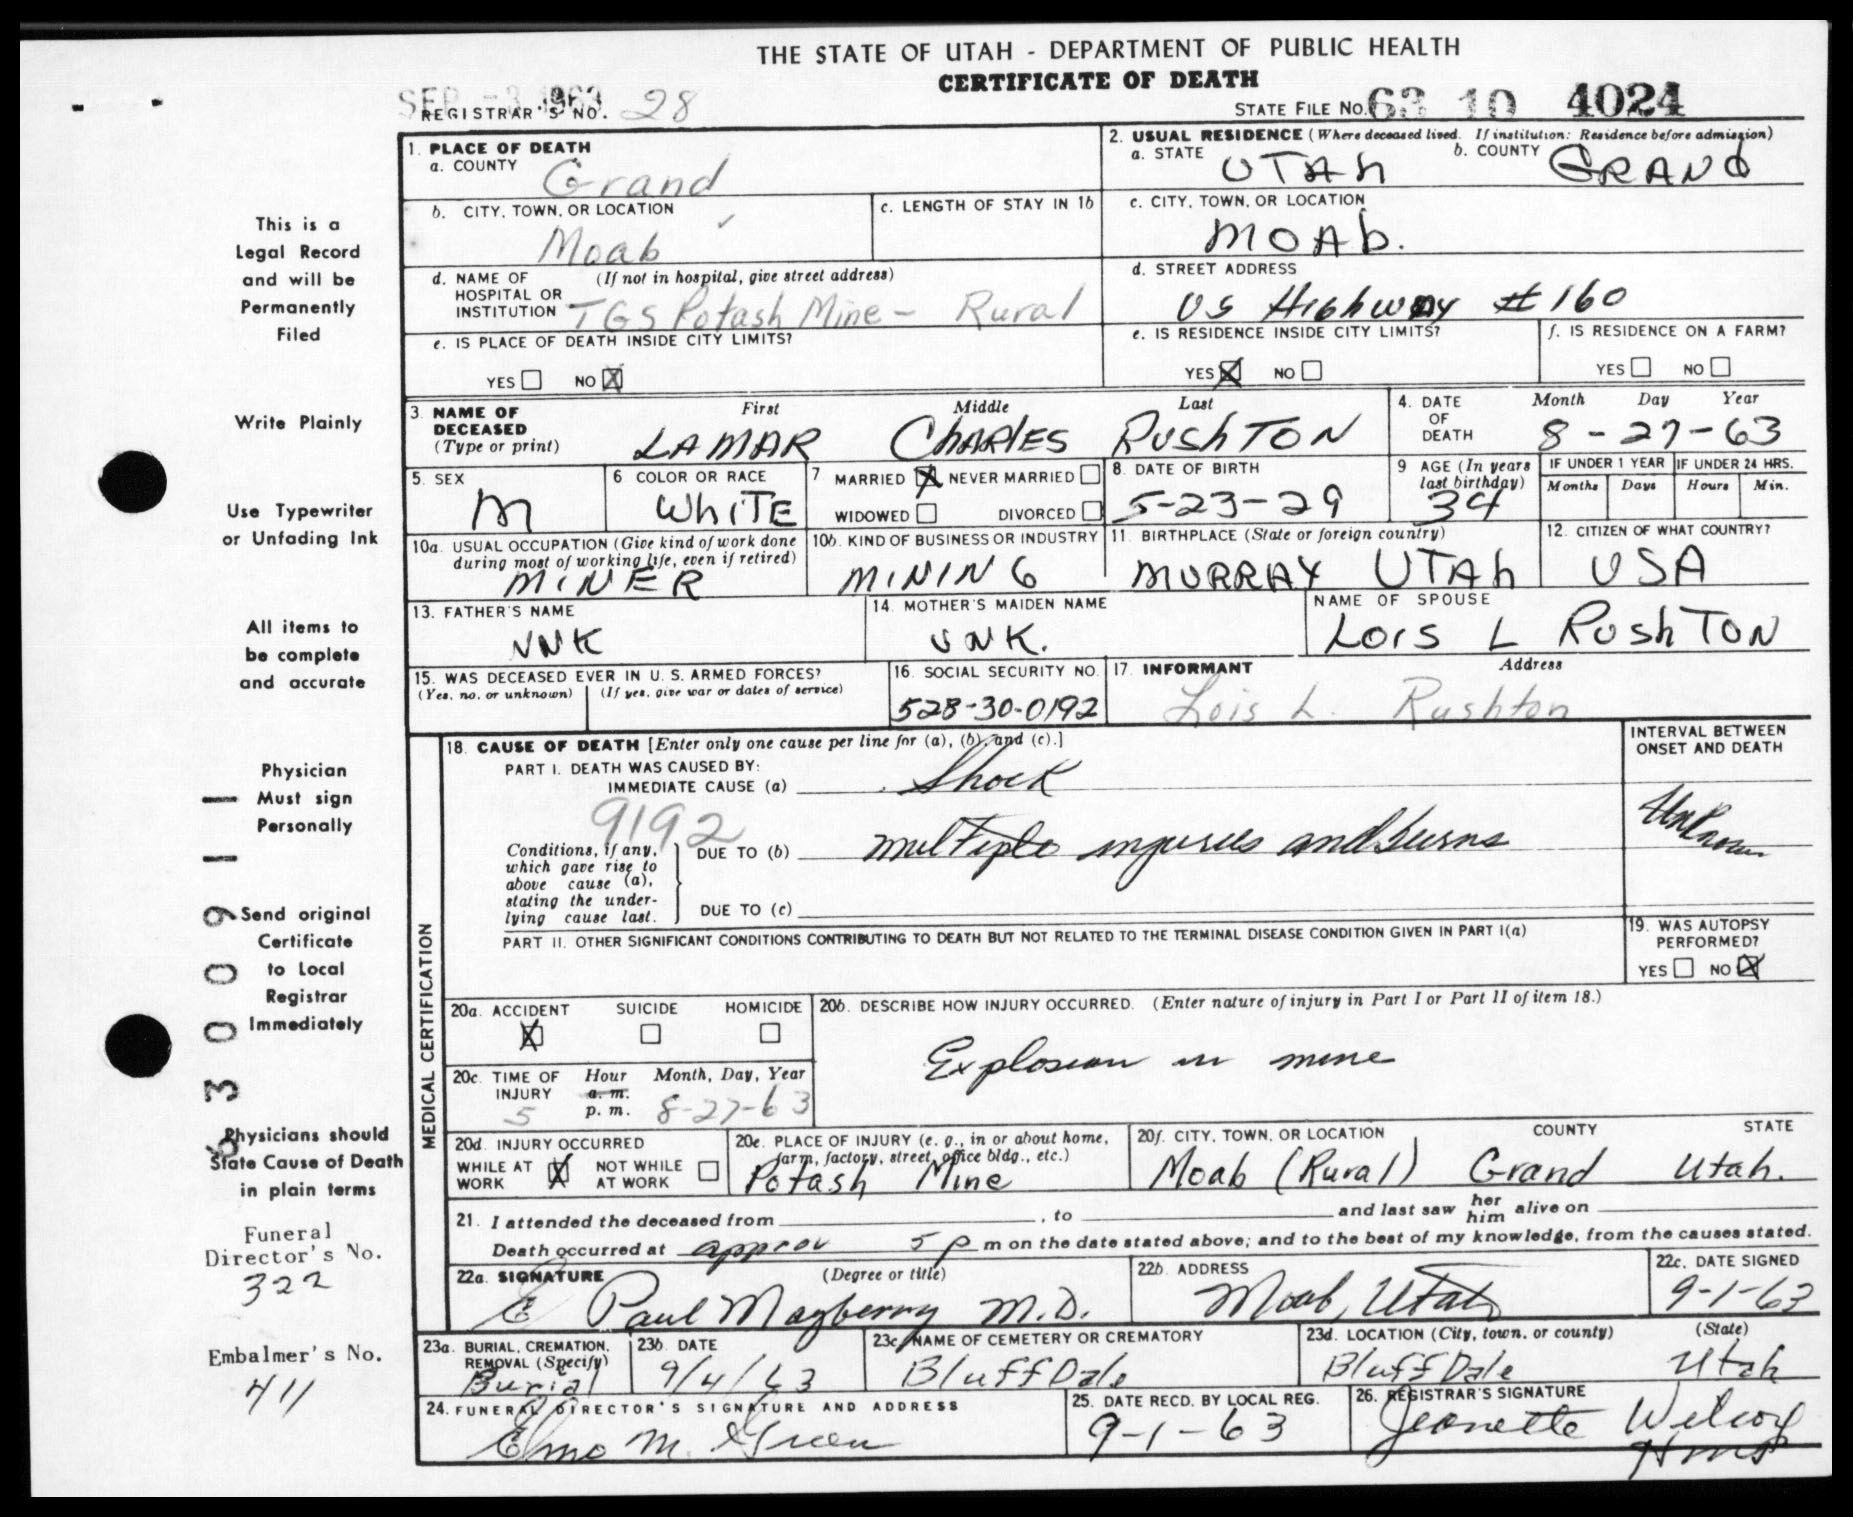 THE STATE OF UTAH - DEPARTMENT OF PUBLIC HEALTH
CERTIFICATE OF DEATH
SEP -3 1963
REGISTRAR'S NO. 28
STATE FILE NO. 63 10 4024
1. PLACE OF DEATH
a. COUNTY Grand
2. USUAL RESIDENCE (Where deceased lived. If institution: Residence before admission)
a. STATE UTAH b. COUNTY GRAND
b. CITY, TOWN, OR LOCATION Moab
c. LENGTH OF STAY IN 1b
c. CITY, TOWN, OR LOCATION MOAb.
d. NAME OF HOSPITAL OR INSTITUTION (If not in hospital, give street address) TGS Potash Mine - Rural
d. STREET ADDRESS US Highway #160
e. IS PLACE OF DEATH INSIDE CITY LIMITS?
YES NO X
e. IS RESIDENCE INSIDE CITY LIMITS?
YES X NO
f. IS RESIDENCE ON A FARM?
YES NO
3. NAME OF DECEASED (Type or print)
First Middle Last
LAMAR ChARlES RushTON
4. DATE OF DEATH Month Day Year
8-27-63
5. SEX M
6 COLOR OR RACE WhiTE
7 MARRIED X NEVER MARRIED
WIDOWED DIVORCED
8. DATE OF BIRTH 5-23-29
9 AGE (In years last birthday) 34
IF UNDER 1 YEAR Months Days
IF UNDER 24 HRS. Hours Min.
10a. USUAL OCCUPATION (Give kind of work done during most of working life, even if retired) MINER
10b. KIND OF BUSINESS OR INDUSTRY MINING
11. BIRTHPLACE (State or foreign country) MURRAY UTAh
12. CITIZEN OF WHAT COUNTRY? USA
13. FATHER'S NAME UNK
14. MOTHER'S MAIDEN NAME UNK.
NAME OF SPOUSE LOIS L RushTON
15. WAS DECEASED EVER IN U. S. ARMED FORCES?
(Yes, no, or unknown) (If yes, give war or dates of service)
16. SOCIAL SECURITY NO. 528-30-0192
17. INFORMANT Address
Lois L. Rushton
MEDICAL CERTIFICATION
18. CAUSE OF DEATH [Enter only one cause per line for (a), (b), and (c).]
PART I. DEATH WAS CAUSED BY:
IMMEDIATE CAUSE (a) Shock
9192
Conditions, if any, which gave rise to above cause (a), stating the underlying cause last.
DUE TO (b) multiple injuries and burns
DUE TO (c)
INTERVAL BETWEEN ONSET AND DEATH
Unknown
PART II. OTHER SIGNIFICANT CONDITIONS CONTRIBUTING TO DEATH BUT NOT RELATED TO THE TERMINAL DISEASE CONDITION GIVEN IN PART I(a)
19. WAS AUTOPSY PERFORMED?
YES NO X
20a. ACCIDENT X SUICIDE HOMICIDE
20b. DESCRIBE HOW INJURY OCCURRED. (Enter nature of injury in Part I or Part II of item 18.)
Explosion in mine
20c. TIME OF INJURY Hour Month, Day, Year
5 a. m. p. m. 8-27-63
20d. INJURY OCCURRED
WHILE AT WORK X NOT WHILE AT WORK
20e. PLACE OF INJURY (e. g., in or about home, farm, factory, street, office bldg., etc.)
Potash Mine
20f. CITY, TOWN, OR LOCATION COUNTY STATE
Moab (Rural) Grand Utah.
21. I attended the deceased from , to and last saw her him alive on
Death occurred at approx 5 p m on the date stated above; and to the best of my knowledge, from the causes stated.
22a. SIGNATURE (Degree or title)
E Paul Mayberry M.D.
22b. ADDRESS Moab, Utah
22c. DATE SIGNED 9-1-63
23a. BURIAL, CREMATION, REMOVAL (Specify) Burial
23b. DATE 9/4/63
23c. NAME OF CEMETERY OR CREMATORY BluffDale
23d. LOCATION (City, town, or county) (State)
BluffDale Utah
24. FUNERAL DIRECTOR'S SIGNATURE AND ADDRESS
Elmo M. Green
25. DATE RECD. BY LOCAL REG. 9-1-63
26. REGISTRAR'S SIGNATURE
Jeanette Wilcox
This is a
Legal Record
and will be
Permanently
Filed
Write Plainly
Use Typewriter
or Unfading Ink
All items to
be complete
and accurate
Physician
Must sign
Personally
Send original
Certificate
to Local
Registrar
Immediately
Physicians should
State Cause of Death
in plain terms
Funeral
Director's No.
322
Embalmer's No.
411